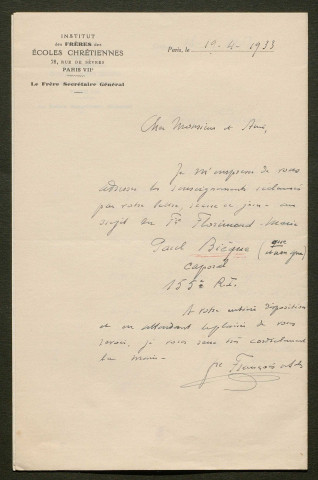 INSTITUT
des FRÈRES des
ÉCOLES CHRÉTIENNES
78, RUE DE SÈVRES
PARIS VIIe
Le Frère Secrétaire Général
Paris, le 19-4-1933
Cher Monsieur et Ami,
Je m'empresse de vous
adresser les renseignements réclamés
par votre lettre, reçue ce jour, au
sujet du Fr. Florimond-Marie
Paul Bièque (que
et non gne)
caporal
155e R.I.
A votre entière disposition
et en attendant le plaisir de vous
revoir, je vous serre très cordialement
la main.